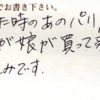 でお書き下さい。
た時のあのパリ
が娘が買って
みです。